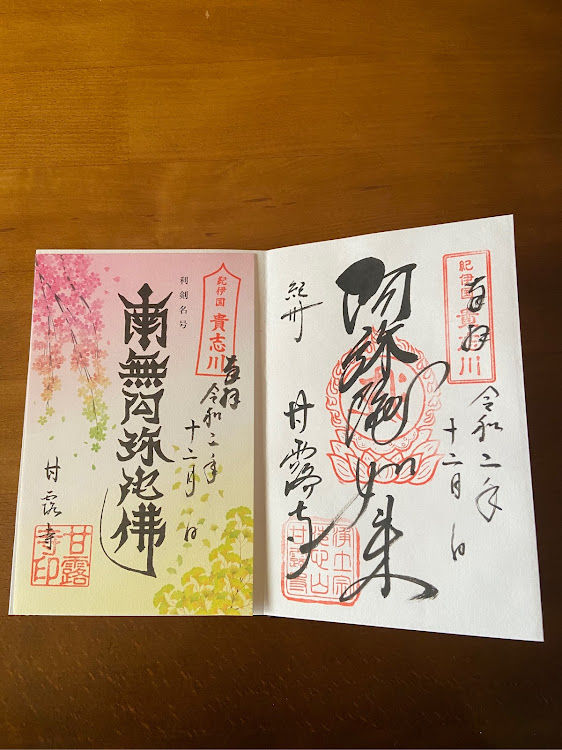 紀伊国 貴志川
奉拝
令和二年
十二月 日
阿弥陀如来
紀州
甘露寺
浄土宗
甘露寺
紀伊国 貴志川
奉拝
令和二年
十二月 日
利剣名号
南無阿弥陀佛
甘露寺
甘露寺印